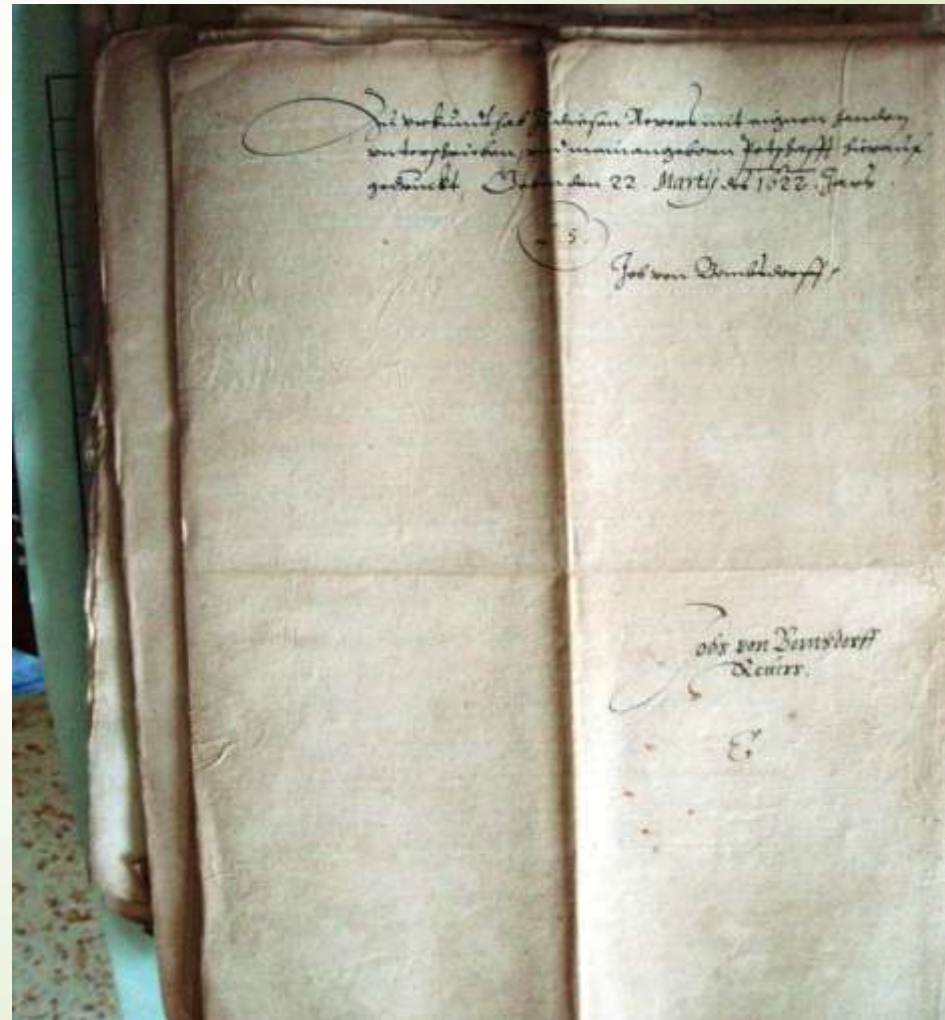 Zu uhrkundt hab Ich diesen Revers mit eignen handen
unterschrieben, und mein angeborn Petschafft hierauf
gedruckt, Geben den 22 Martij des 1622. Jars.
L. S.
Job von Bombsdorff
Jobs von Bomsdorff
Revers.